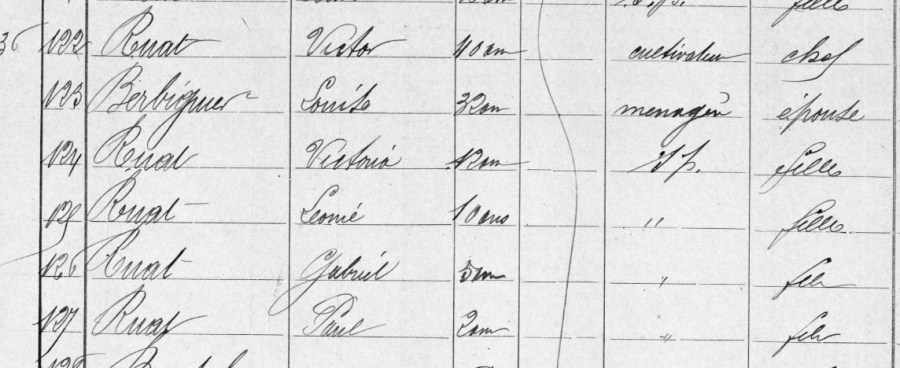 fille
36 122 Ruat Victor 40 ans cultivateur chef
123 Berbiguier Louise 32 an menagère épouse
124 Ruat Victoria 12 an S p. fille
125 Ruat Leonie 10 ans " fille
126 Ruat Gabriel 5 ans " fils
127 Ruat Paul 2 ans " fils